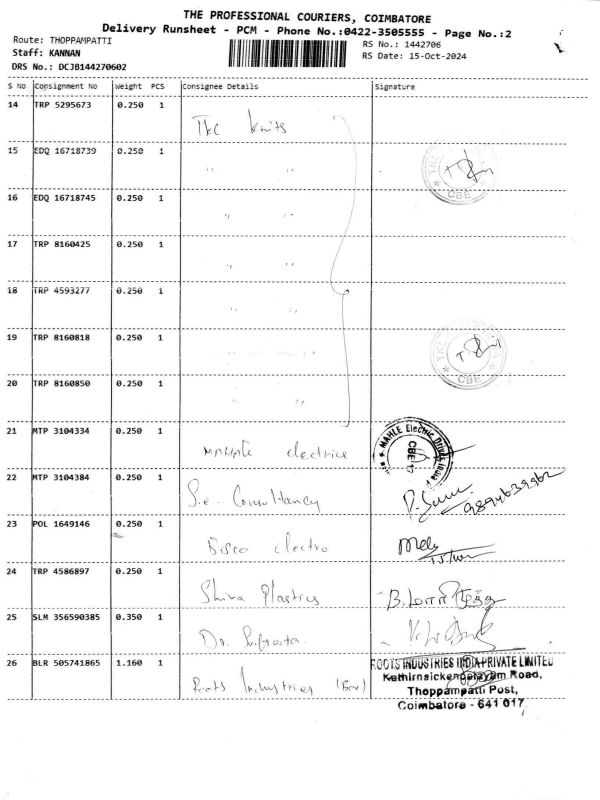 THE PROFESSIONAL COURIERS, COIMBATORE
Delivery Runsheet - PCM - Phone No.:0422-3505555 - Page No.:2
Route: THOPPAMPATTI
Staff: KANNAN
DRS No.: DCJB144270602
RS No.: 1442706
RS Date: 15-Oct-2024
S No Consignment No Weight PCS Consignee Details Signature
14 TRP 5295673 0.250 1 TKC Knits
15 EDQ 16718739 0.250 1 " "
CBE
16 EDQ 16718745 0.250 1 " "
17 TRP 8160425 0.250 1 " "
18 TRP 4593277 0.250 1 " "
19 TRP 8160818 0.250 1 " "
CBE
20 TRP 8160850 0.250 1 " "
21 MTP 3104334 0.250 1 electrice
MAHLE Electric Drives India P
CBE 17
22 MTP 3104384 0.250 1 S.e. Consultancy
9894639962
23 POL 1649146 0.250 1 Bisco electro
24 TRP 4586897 0.250 1 Shiva Plastics
25 SLM 356590385 0.350 1 Dr.
26 BLR 505741865 1.160 1 Roots Industries (Box)
ROOTS INDUSTRIES INDIA PRIVATE LIMITED
Kathirnaickenpalayam Road,
Thoppampatti Post,
Coimbatore - 641 017